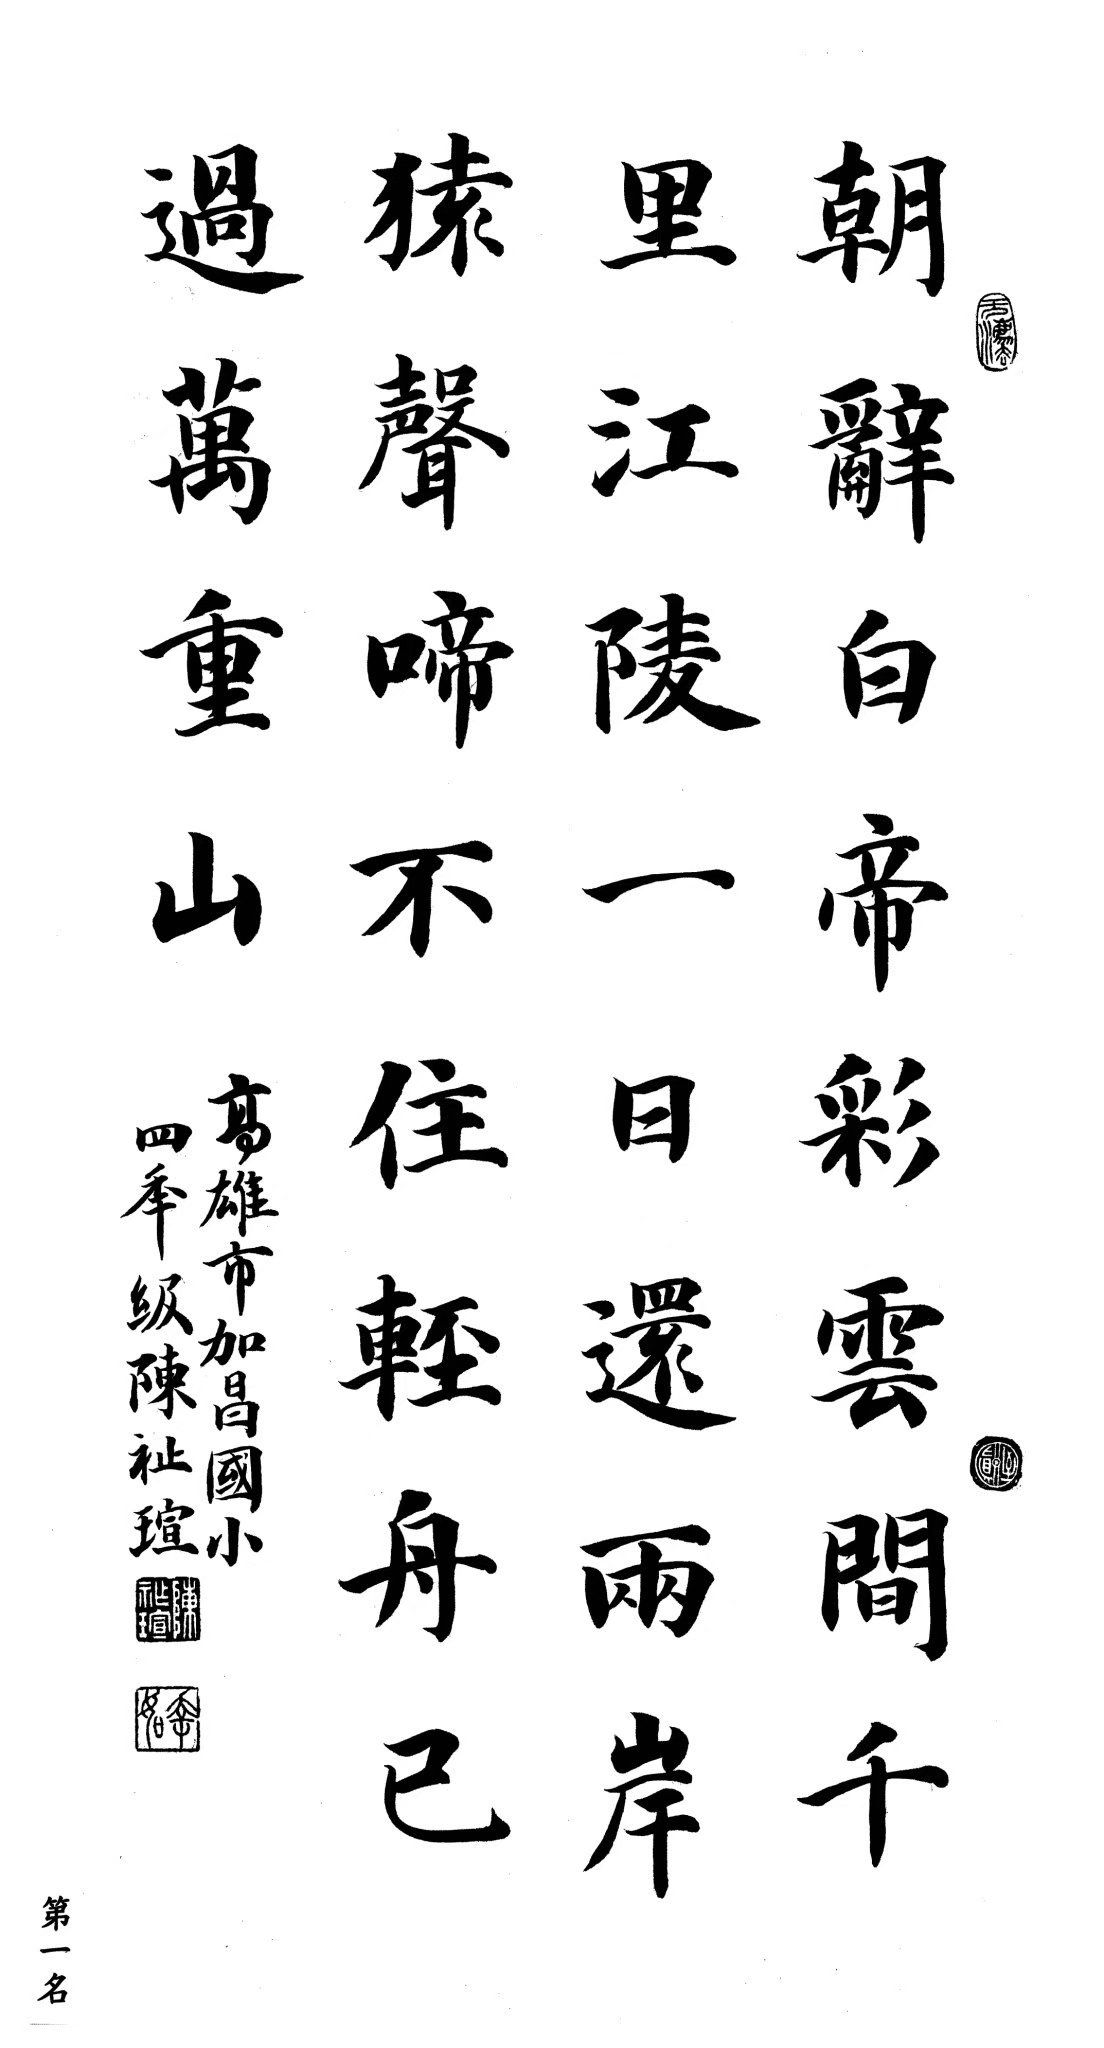 朝辭白帝彩雲間千
里江陵一日還兩岸
猿聲啼不住輕舟已
過萬重山
高雄市加昌國小
四年級陳祉瑄
陳祉瑄
第一名